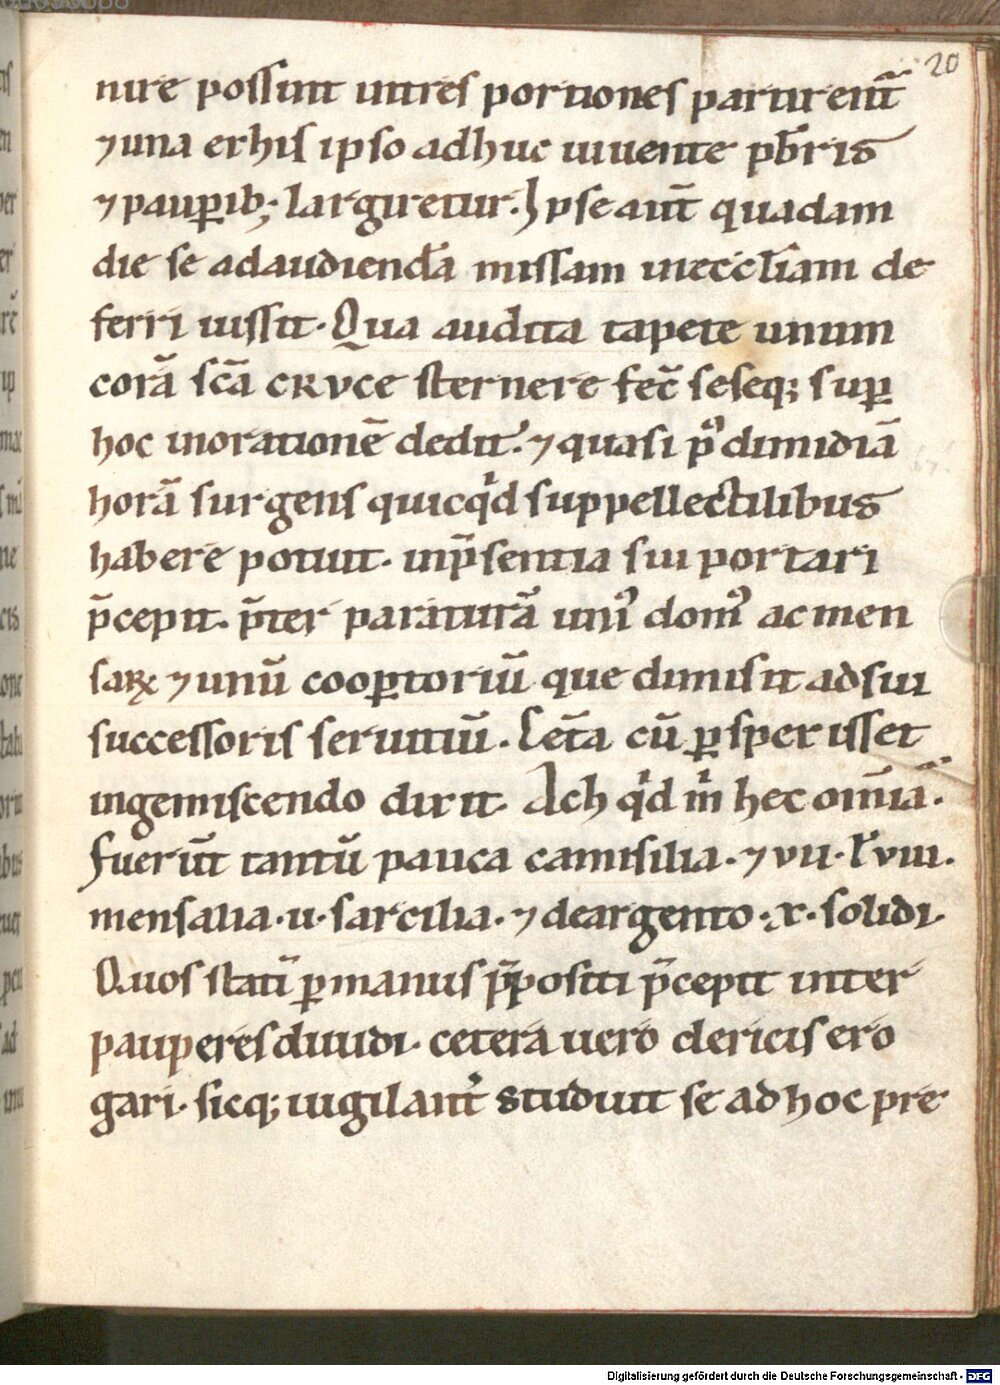 20
nire possint in tres portiones partirent̄
⁊ una ex his ipso adhuc uiuente pb̄ris
⁊ pauꝑib; largiretur. Ipse aut̄ quadam
die se ad audiendā missam in eccl̄iam de
ferri iussit. Qua audita tapete unum
corā scā cruce sternere fec̄ seseq; suꝑ
hoc in orationē dedit. ⁊ quasi ꝑ dimidiā
horā surgens quicqd suppellectilibus
habere potuit. in p̄sentia sui portari
p̄cepit. p̄ter paraturā uni᷒ dom᷒ ac men
saꝝ ⁊ unū cooꝑtoriū que dimisit ad sui
successoris seruitiū. Cet̄a cū ꝑspexisset
ingemiscendo dixit. Ach qd m̄ hec om̄ia.
Fuer̄t tantū pauca camisilia. ⁊ vii. l̄ viii.
mensalia. ii. sarcilia. ⁊ de argento. x. solidi.
Quos statī ꝑ manus p̄positi p̄cepit inter
pauperes diuidi. cetera uero clericis ero
gari. sicq; uigilant̄ studuit se ad hoc pre
Digitalisierung gefördert durch die Deutsche Forschungsgemeinschaft - DFG